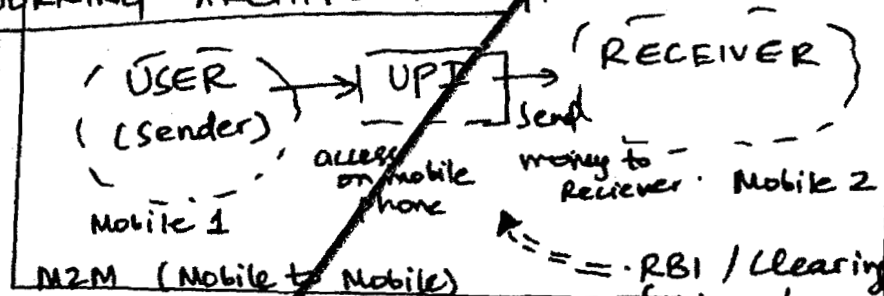 USER
(Sender)
Mobile 1
UPI
access
on mobile
phone
Send
money to
Reciever.
RECEIVER
Mobile 2
M2M (Mobile to Mobile)
RBI / Clearing